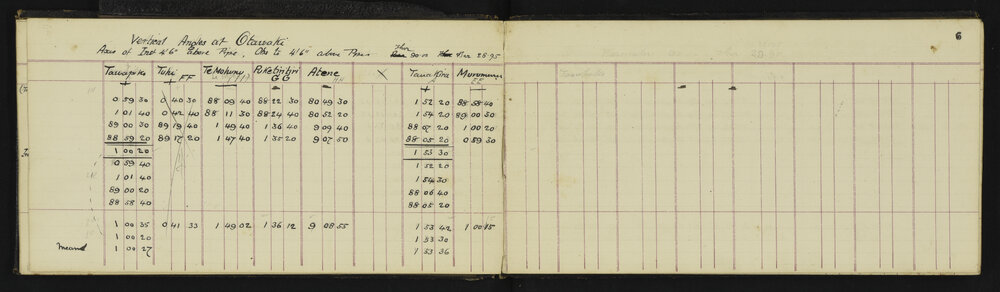 6
Vertical Angles at Otawaki
Axis of Inst 4'6" above Pipe, Obs to 4'6" above Pipe. Ther 90.0 Bar 28.95
Tuhi Te Mohunu Puketintiri Atene X Tawapira
+ + FF GG HH +
0 59 30 0 40 30 88 09 40 88 22 30 80 49 30 1 52 20 88 58 40
1 01 40 0 42 40 88 11 30 88 24 40 80 52 20 1 54 20 89 00 30
89 00 30 89 19 40 1 49 40 1 36 40 9 09 40 88 07 20 1 00 20
88 59 20 89 17 20 1 47 40 1 35 20 9 07 50 88 05 20 0 59 30
1 00 20 1 53 30
0 59 40 1 52 20
1 01 40 1 54 30
89 00 20 88 06 40
88 58 40 88 05 20
1 00 35 0 41 33 1 49 02 1 36 12 9 08 55 1 53 42 1 00 15
1 00 20 1 53 30
Means 1 00 27 1 53 36